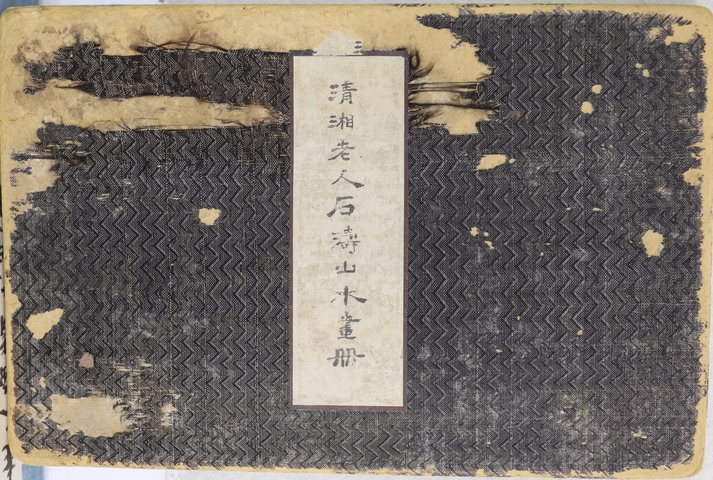 清湘老人石濤山水畫冊